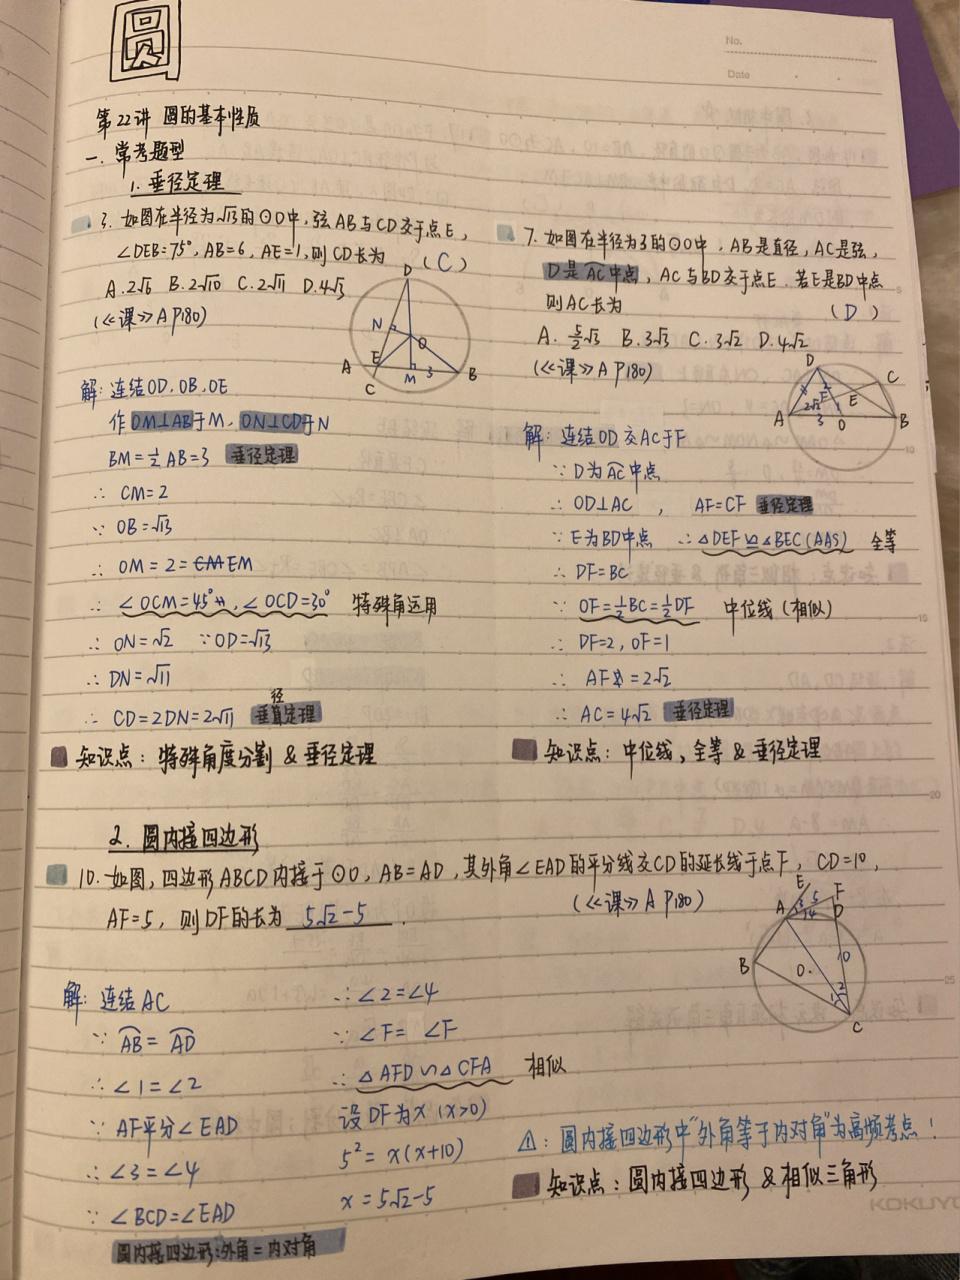 圆
No.
Date
第22讲 圆的基本性质
一. 常考题型
1. 垂径定理
3. 如图在半径为√13的⊙O中,弦AB与CD交于点E,
∠DEB=75°, AB=6, AE=1,则CD长为 (C)
A.2√6 B.2√10 C.2√11 D.4√3
(《课》A P180)
D
N
O
A
E
C
M
3
B
解: 连结OD、OB、OE
作OM⊥AB于M, ON⊥CD于N
BM=½AB=3 垂径定理
∴ CM=2
∵ OB=√13
∴ OM=2=EM
∴ ∠OCM=45°, ∠OCD=30° 特殊角运用
∴ ON=√2 ∵OD=√13
∴ DN=√11
径
∴ CD=2DN=2√11 垂直定理
知识点: 特殊角度分割 & 垂径定理
7. 如图在半径为3的⊙O中, AB是直径, AC是弦,
D是AC中点, AC与BD交于点E. 若E是BD中点
则AC长为 (D)
A. 5/2√3 B.3√3 C.3√2 D.4√2
(《课》A P180)
D
C
F
E
2√2
1
A
3
O
B
解: 连结OD交AC于F
∵ D为AC中点
∴ OD⊥AC, AF=CF 垂径定理
∵ E为BD中点 ∴△DEF≌△BEC(AAS) 全等
∴ DF=BC
∵ OF=½BC=½DF 中位线(相似)
∴ DF=2, OF=1
∴ AF=2√2
∴ AC=4√2 垂径定理
知识点: 中位线、全等 & 垂径定理
2. 圆内接四边形
10. 如图, 四边形ABCD内接于⊙O, AB=AD, 其外角∠EAD的平分线交CD的延长线于点F, CD=10,
AF=5, 则DF的长为 5√2-5 . (《课》A P180)
E
F
A
3
5
4
D
B
O
10
1
2
C
解: 连结AC
∵ AB=AD
∴ ∠1=∠2
∵ AF平分∠EAD
∴ ∠3=∠4
∵ ∠BCD=∠EAD
圆内接四边形:外角=内对角
∴∠2=∠4
∵∠F=∠F
∴△AFD∽△CFA 相似
设DF为x (x>0)
5²=x(x+10)
x=5√2-5
⚠: 圆内接四边形中"外角等于内对角"为高频考点!
知识点: 圆内接四边形 & 相似三角形
KOKUYO